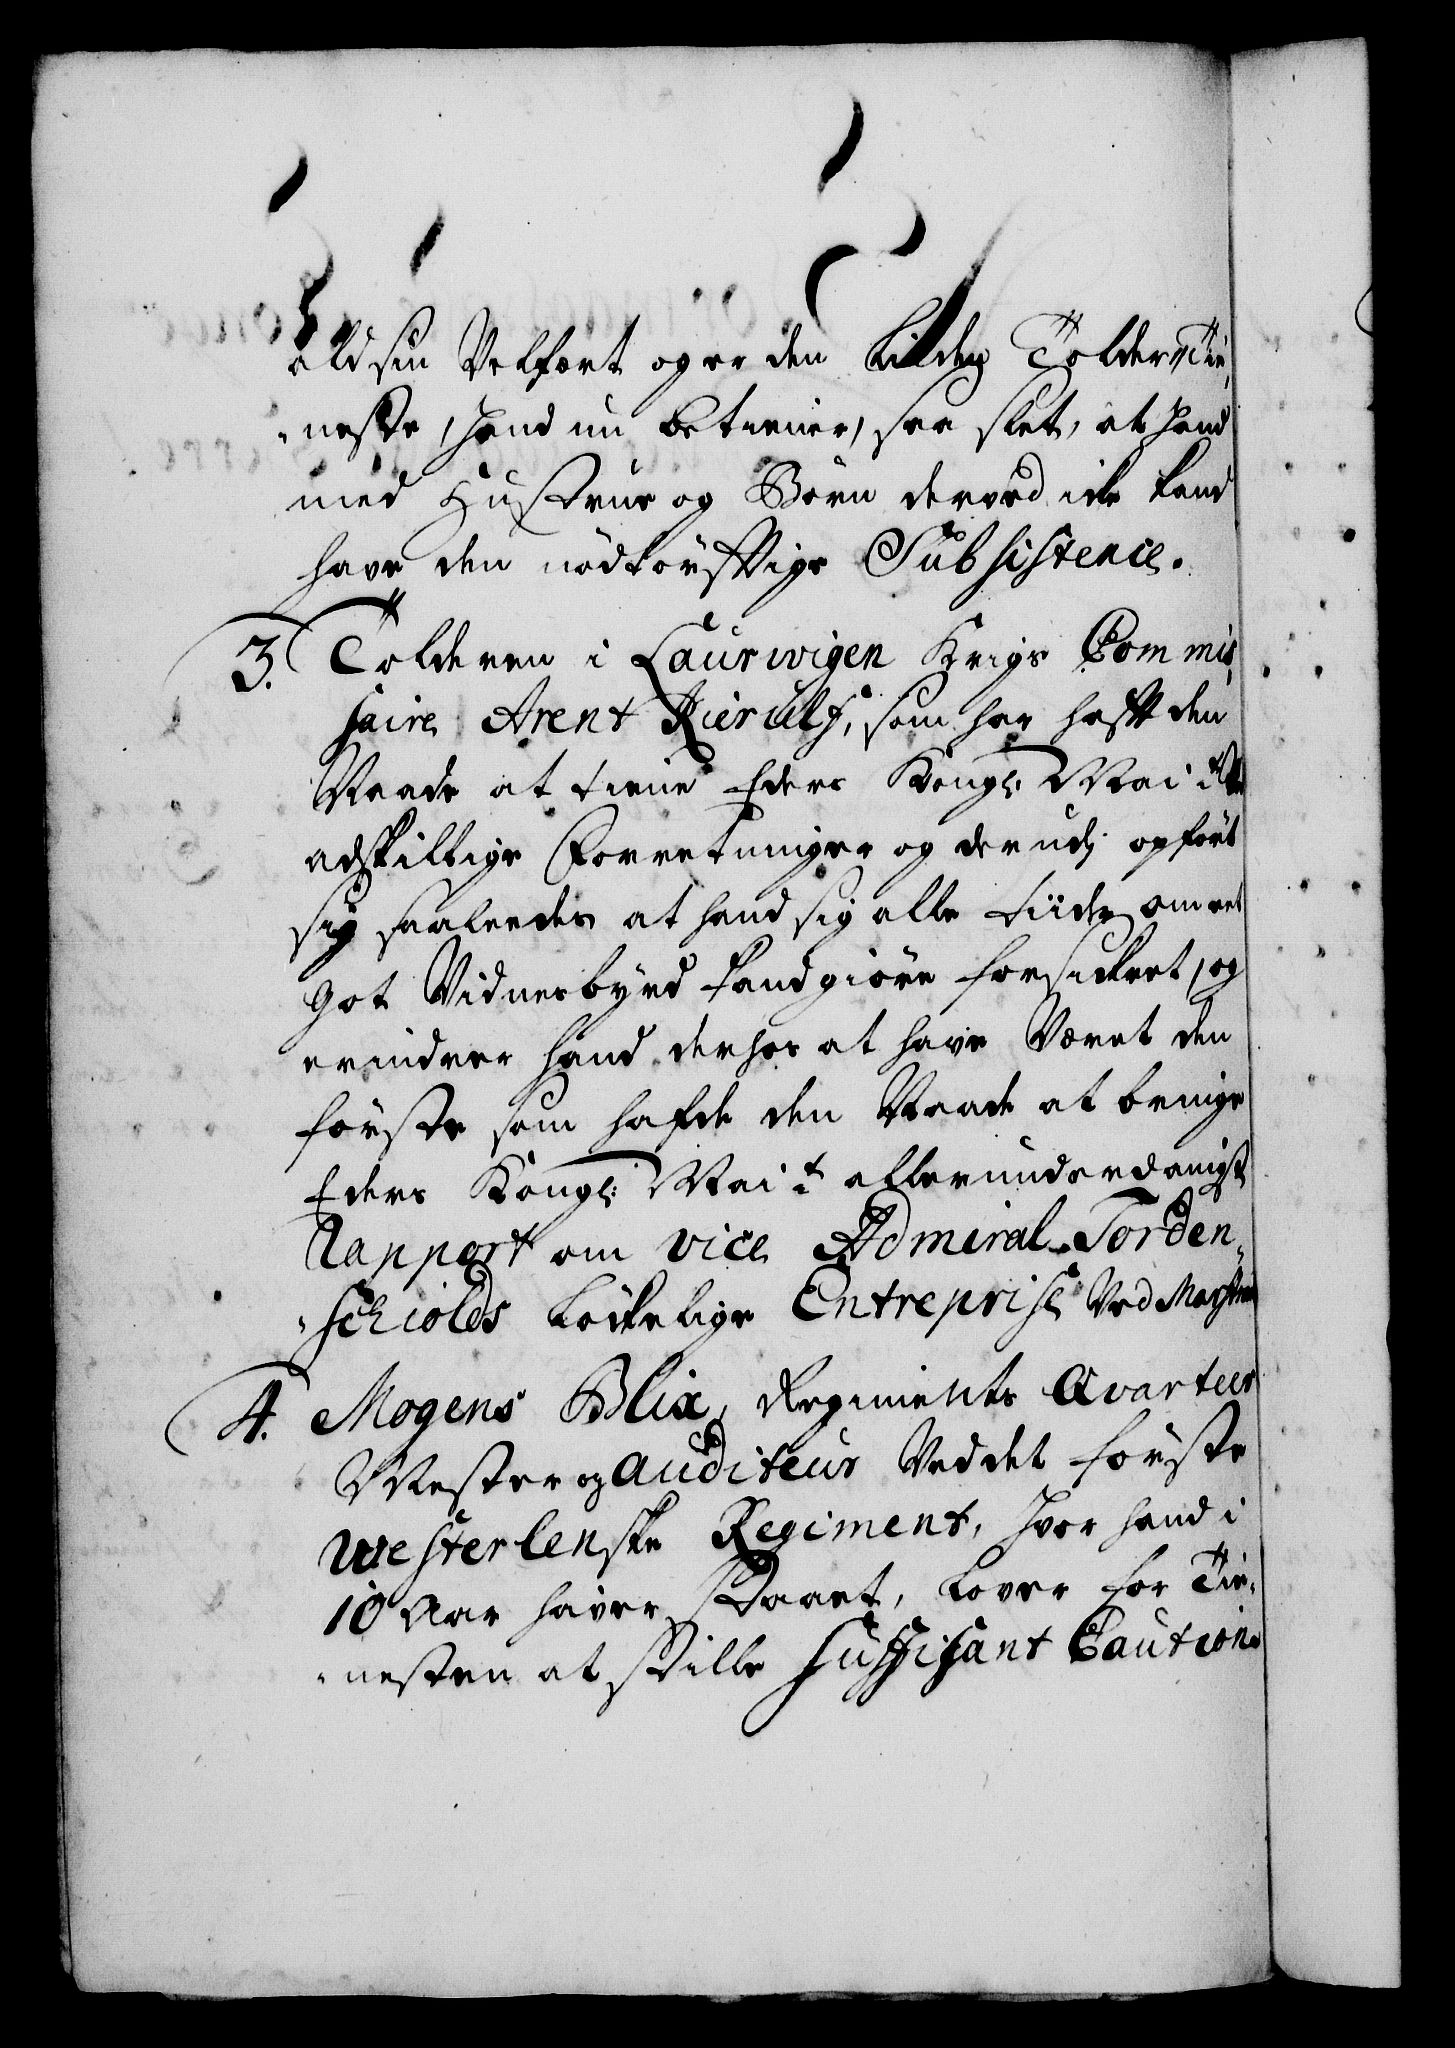 all sin Velfært og er den liden Tolder Tie,
neste, hand nu betiener, saa slet, at hand
med Hustrue og Börn derved icke kand
have den nödtörfftige Subsistence.
3. Tolderen i Laurwigen Krigs Commis,
saire Arent Kierulf, som har hafft den
Naade at tiene Eders Kongl: Mai:t
adskillige Forretninger og derudj opfört
sig saaledes at hand sig alle tiider om et
got Vidnesbyrd kand giöre forsickret, og
erindrer hand derhos at have Været den
förste som hafde den Naade at bringe
Eders Kongl: Mai:t allerunderdanigst
Rapport om vice Admiral Torden,,
,,schiolds löckelige Entreprise Ved Marstrand
4. Mogens Blix, Regiments Qvarteer
Mester og Auditeur Ved det förste
Westerlenske Regiment, hvor hand i
10 Aar haver staaet, lover for Tie,
,nesten at stille suffisant Caution